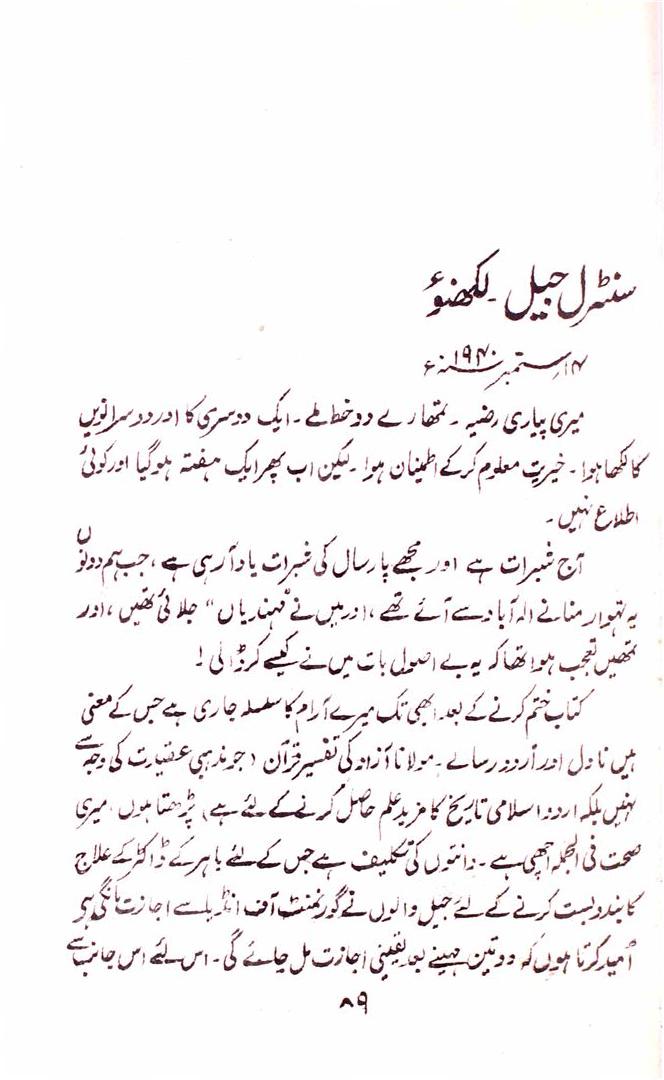 سنٹرل جیل۔ لکھنؤ
۱۴؍ ستمبر ۱۹۴۰ء
میری پیاری رضیہ۔ تمھارے دو خط ملے۔ ایک دوسری کا اور دوسرا نویں
کا لکھا ہوا۔ خیریت معلوم کرکے اطمینان ہوا۔ لیکن اب پھر ایک ہفتہ ہوگیا اور کوئی
اطلاع نہیں۔
آج شبرات ہے اور مجھے پارسال کی شبرات یاد آرہی ہے، جب ہم دونوں
یہ تہوار منانے الہ آباد سے آئے تھے، اور میں نے "مہندیاں" جلائی تھیں، اور
تمھیں تعجب ہوا تھا کہ یہ بے اصول بات میں نے کیسے کر ڈالی!
کتاب ختم کرنے کے بعد ابھی تک میرے آرام کا سلسلہ جاری ہے جس کے معنی
ہیں ناول اور اردو رسالے۔ مولانا آزاد کی تفسیر قرآن (جو مذہبی عقیادت کی وجہ سے
نہیں بلکہ اردو اسلامی تاریخ کا مزید علم حاصل کرنے کے لئے ہے) پڑھتا ہوں، میری
صحت فی الجملہ اچھی ہے۔ دانتوں کی تکلیف ہے جس کے لئے باہر کے ڈاکٹر کے علاج
کا بندوبست کرنے کے لئے جیل والوں نے گورنمنٹ آف انڈیا سے اجازت مانگی ہے
اُمید کرتا ہوں کہ دو تین مہینے بعد یقینی اجازت مل جائے گی۔ اس لئے اس جانب سے
۸۹